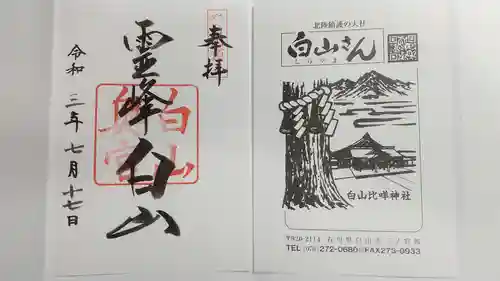 奉拝
霊峰白山
白山
奥宮
令和三年七月十七日
北陸鎮護の大社
白山さん
しらやま
白山比咩神社
〒920-2114 石川県白山市三ノ宮町
TEL (076) 272-0680㈹FAX273-0933